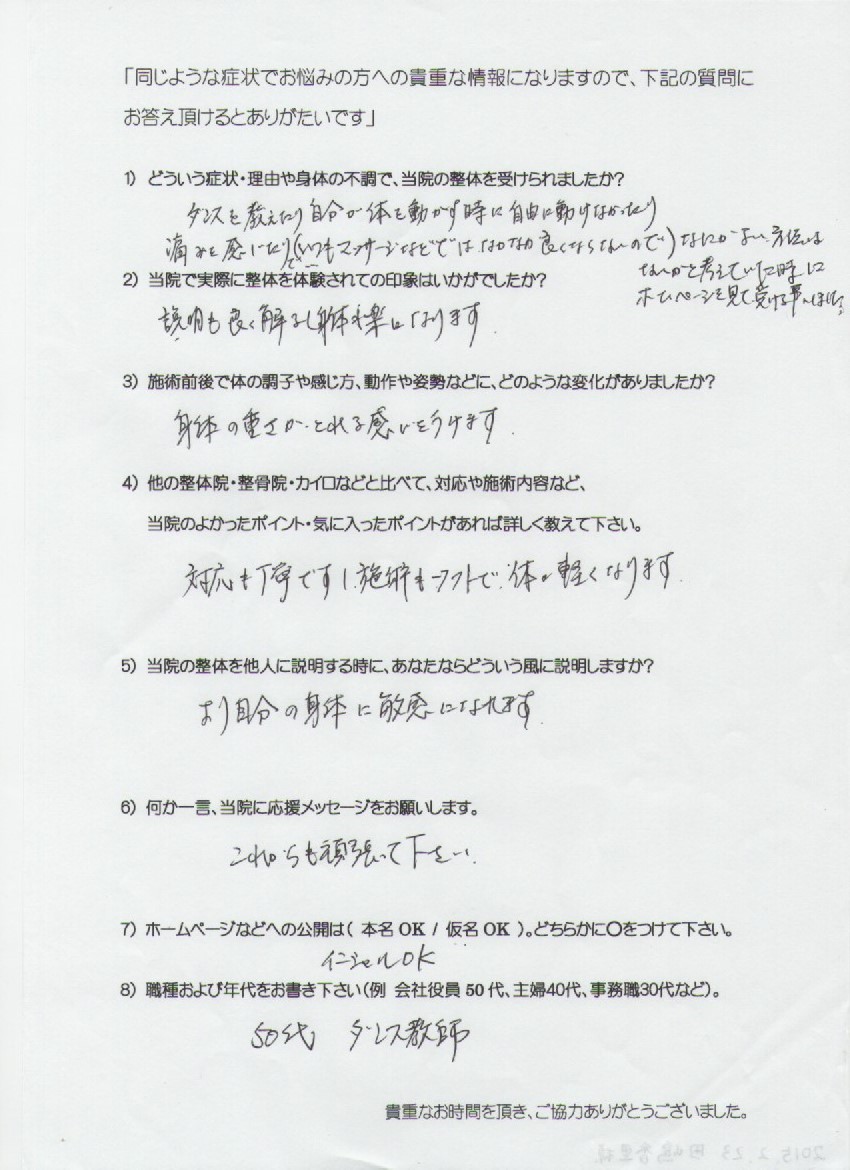 「同じような症状でお悩みの方への貴重な情報になりますので、下記の質問に
お答え頂けるとありがたいです」
1) どういう症状・理由や身体の不調で、当院の整体を受けられましたか?
ダンスを教えたり自分が体を動かす時に自由に動けなかったり
痛みを感じたり(いつもマッサージなどではなかなか良くならないので)なにかよい方法は
ないかと考えていた時に
ホームページを見て受ける事にしました。
2) 当院で実際に整体を体験されての印象はいかがでしたか?
説明も良く解るし身体も楽になります.
3) 施術前後で体の調子や感じ方、動作や姿勢などに、どのような変化がありましたか?
身体の重さがとれる感じをうけます.
4) 他の整体院・整骨院・カイロなどと比べて、対応や施術内容など、
当院のよかったポイント・気に入ったポイントがあれば詳しく教えて下さい。
対応も丁寧ですし施術もソフトで体が軽くなります.
5) 当院の整体を他人に説明する時に、あなたならどういう風に説明しますか?
より自分の身体に敏感になれます.
6) 何か一言、当院に応援メッセージをお願いします。
これからも頑張って下さい.
7) ホームページなどへの公開は( 本名 OK / 仮名 OK )。どちらかに〇をつけて下さい。
イニシャルOK
8) 職種および年代をお書き下さい(例 会社役員 50 代、主婦40代、事務職30代など)。
50代 ダンス教師
貴重なお時間を頂き、ご協力ありがとうございました。
2015.2.23